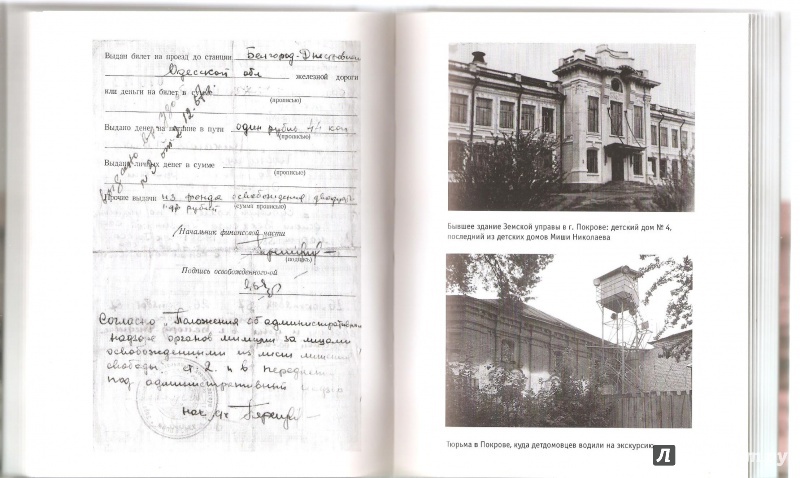 Выдан билет на проезд до станции Белгород-Днестровский
Одесской обл железной дороги
или деньги на билет в сумме
(прописью)
Выдано денег на питание в пути один рубль 44 коп
(прописью)
Выдано личных денег в сумме
(прописью)
Прочие выдачи из фонда освобождения двадцать
рублей (сумма прописью)
Начальник финансовой части
(подпись)
Подпись освобожденного-ой
Согласно "Положения об административном
надзоре органов милиции за лицами
освобожденными из мест лишения
свободы" ст. 2. п в передан
под административный надзор
Бывшее здание Земской управы в г. Покрове: детский дом № 4,
последний из детских домов Миши Николаева
Тюрьма в Покрове, куда детдомовцев водили на экскурсию
Л